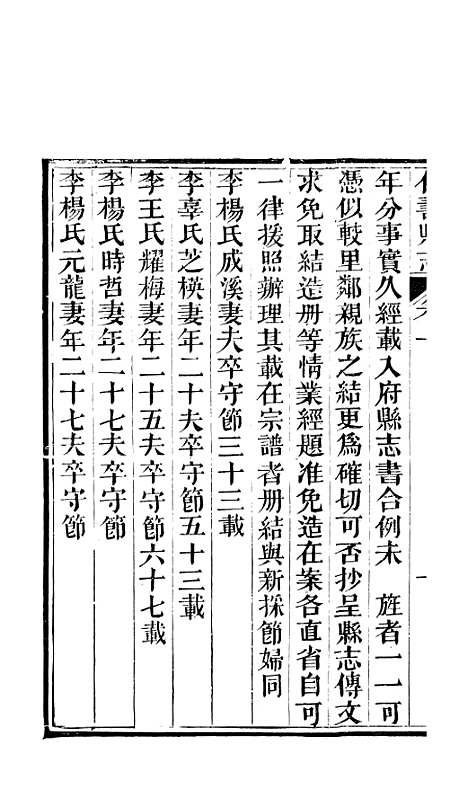 年分事實久經載入府縣志書合例未 旌者一一可
憑似較里鄰親族之結更爲確切可否抄呈縣志傳文
求免取結造册等情業經題准免造在案各直省自可
一律援照辦理其載在宗譜者册結與新採節婦同
李楊氏成溪妻夫卒守節三十三載
李辜氏芝模妻年二十夫卒守節五十三載
李王氏耀梅妻年二十五夫卒守節六十七載
李楊氏時哲妻年二十七夫卒守節
李楊氏元龍妻年二十七夫卒守節